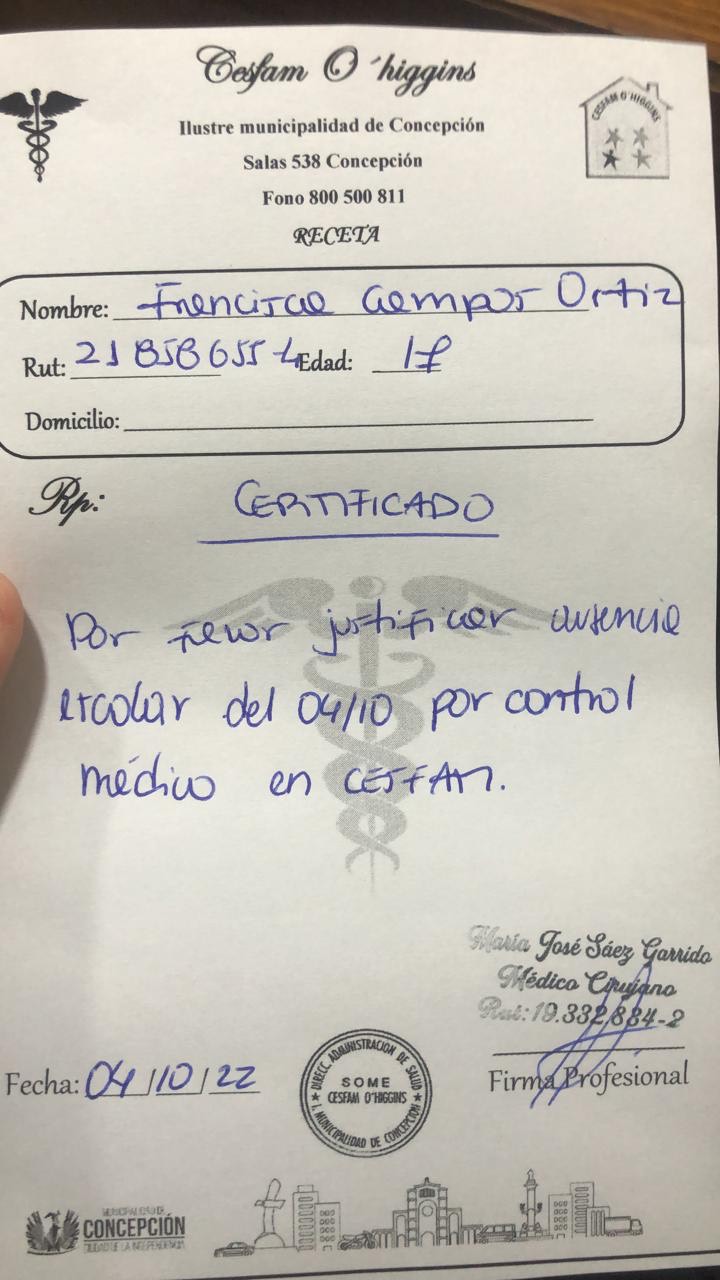 Cesfam O´higgins
CESFAM O'HIGGINS
Ilustre municipalidad de Concepción
Salas 538 Concepción
Fono 800 500 811
RECETA
Nombre: Francisca Campos Ortiz
Rut: 21858655-4 Edad: 17
Domicilio:
Rp: CERTIFICADO
Por favor justificar ausencia
escolar del 04/10 por control
médico en CESFAM.
María José Sáez Garrido
Médico Cirujano
Rut: 19.332.884-2
Firma Profesional
Fecha: 04/10/22
DIRECC. ADMINISTRACION DE SALUD
SOME
CESFAM O'HIGGINS
I. MUNICIPALIDAD DE CONCEPCIÓN
MUNICIPALIDAD DE
CONCEPCIÓN
CIUDAD DE LA INDEPENDENCIA